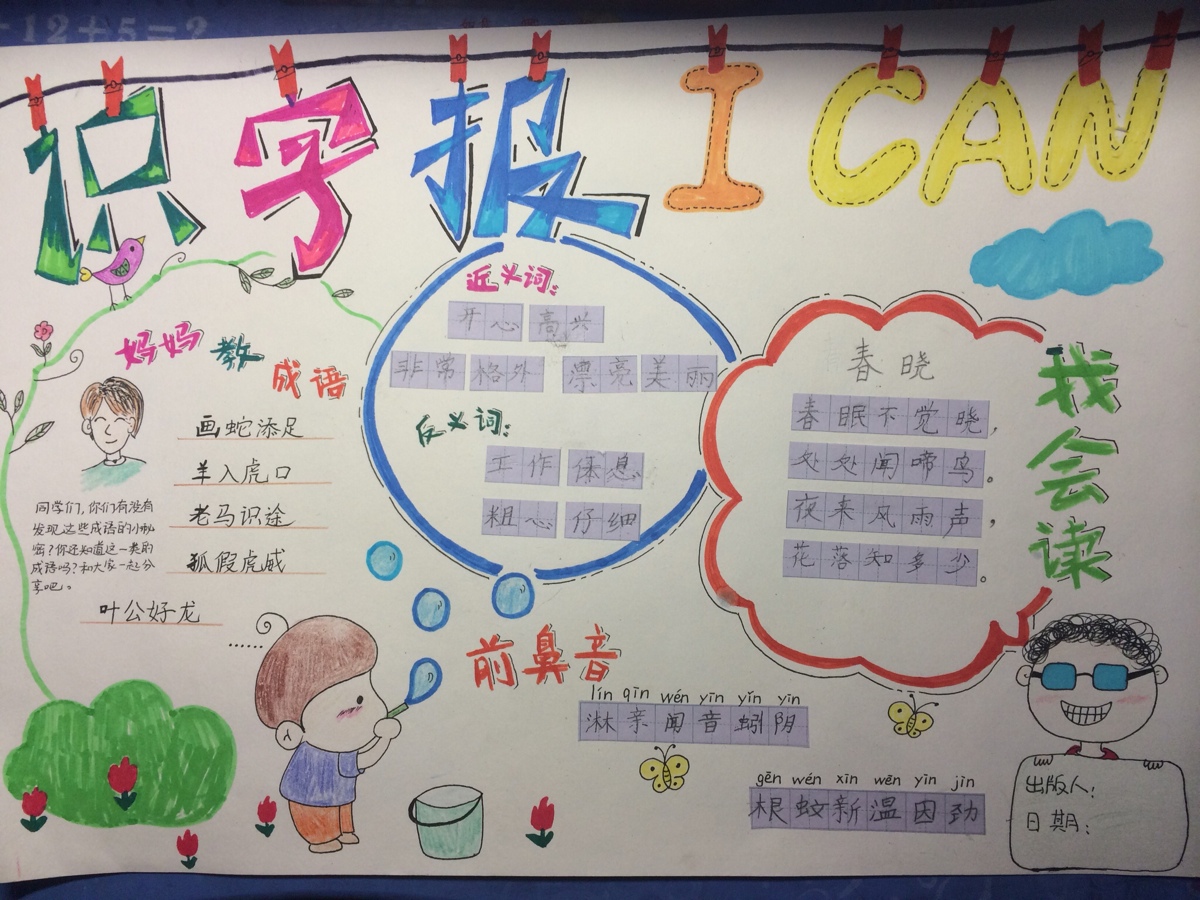 12+5=?
识字报 I CAN
妈妈教成语
画蛇添足
羊入虎口
老马识途
狐假虎威
叶公好龙
......
同学们,你们有没有
发现这些成语的小秘
密?你还知道这一类的
成语吗?和大家一起分
享吧。
近义词:
开心 高兴
非常 格外 漂亮 美丽
反义词:
工作 休息
粗心 仔细
我会读
春晓
春眠不觉晓,
处处闻啼鸟。
夜来风雨声,
花落知多少。
前鼻音
lín qīn wén yīn yǐn yīn
淋亲闻音蚓阴
gēn wén xīn wēn yīn jìn
根蚊新温因劲
出版人:
日期: